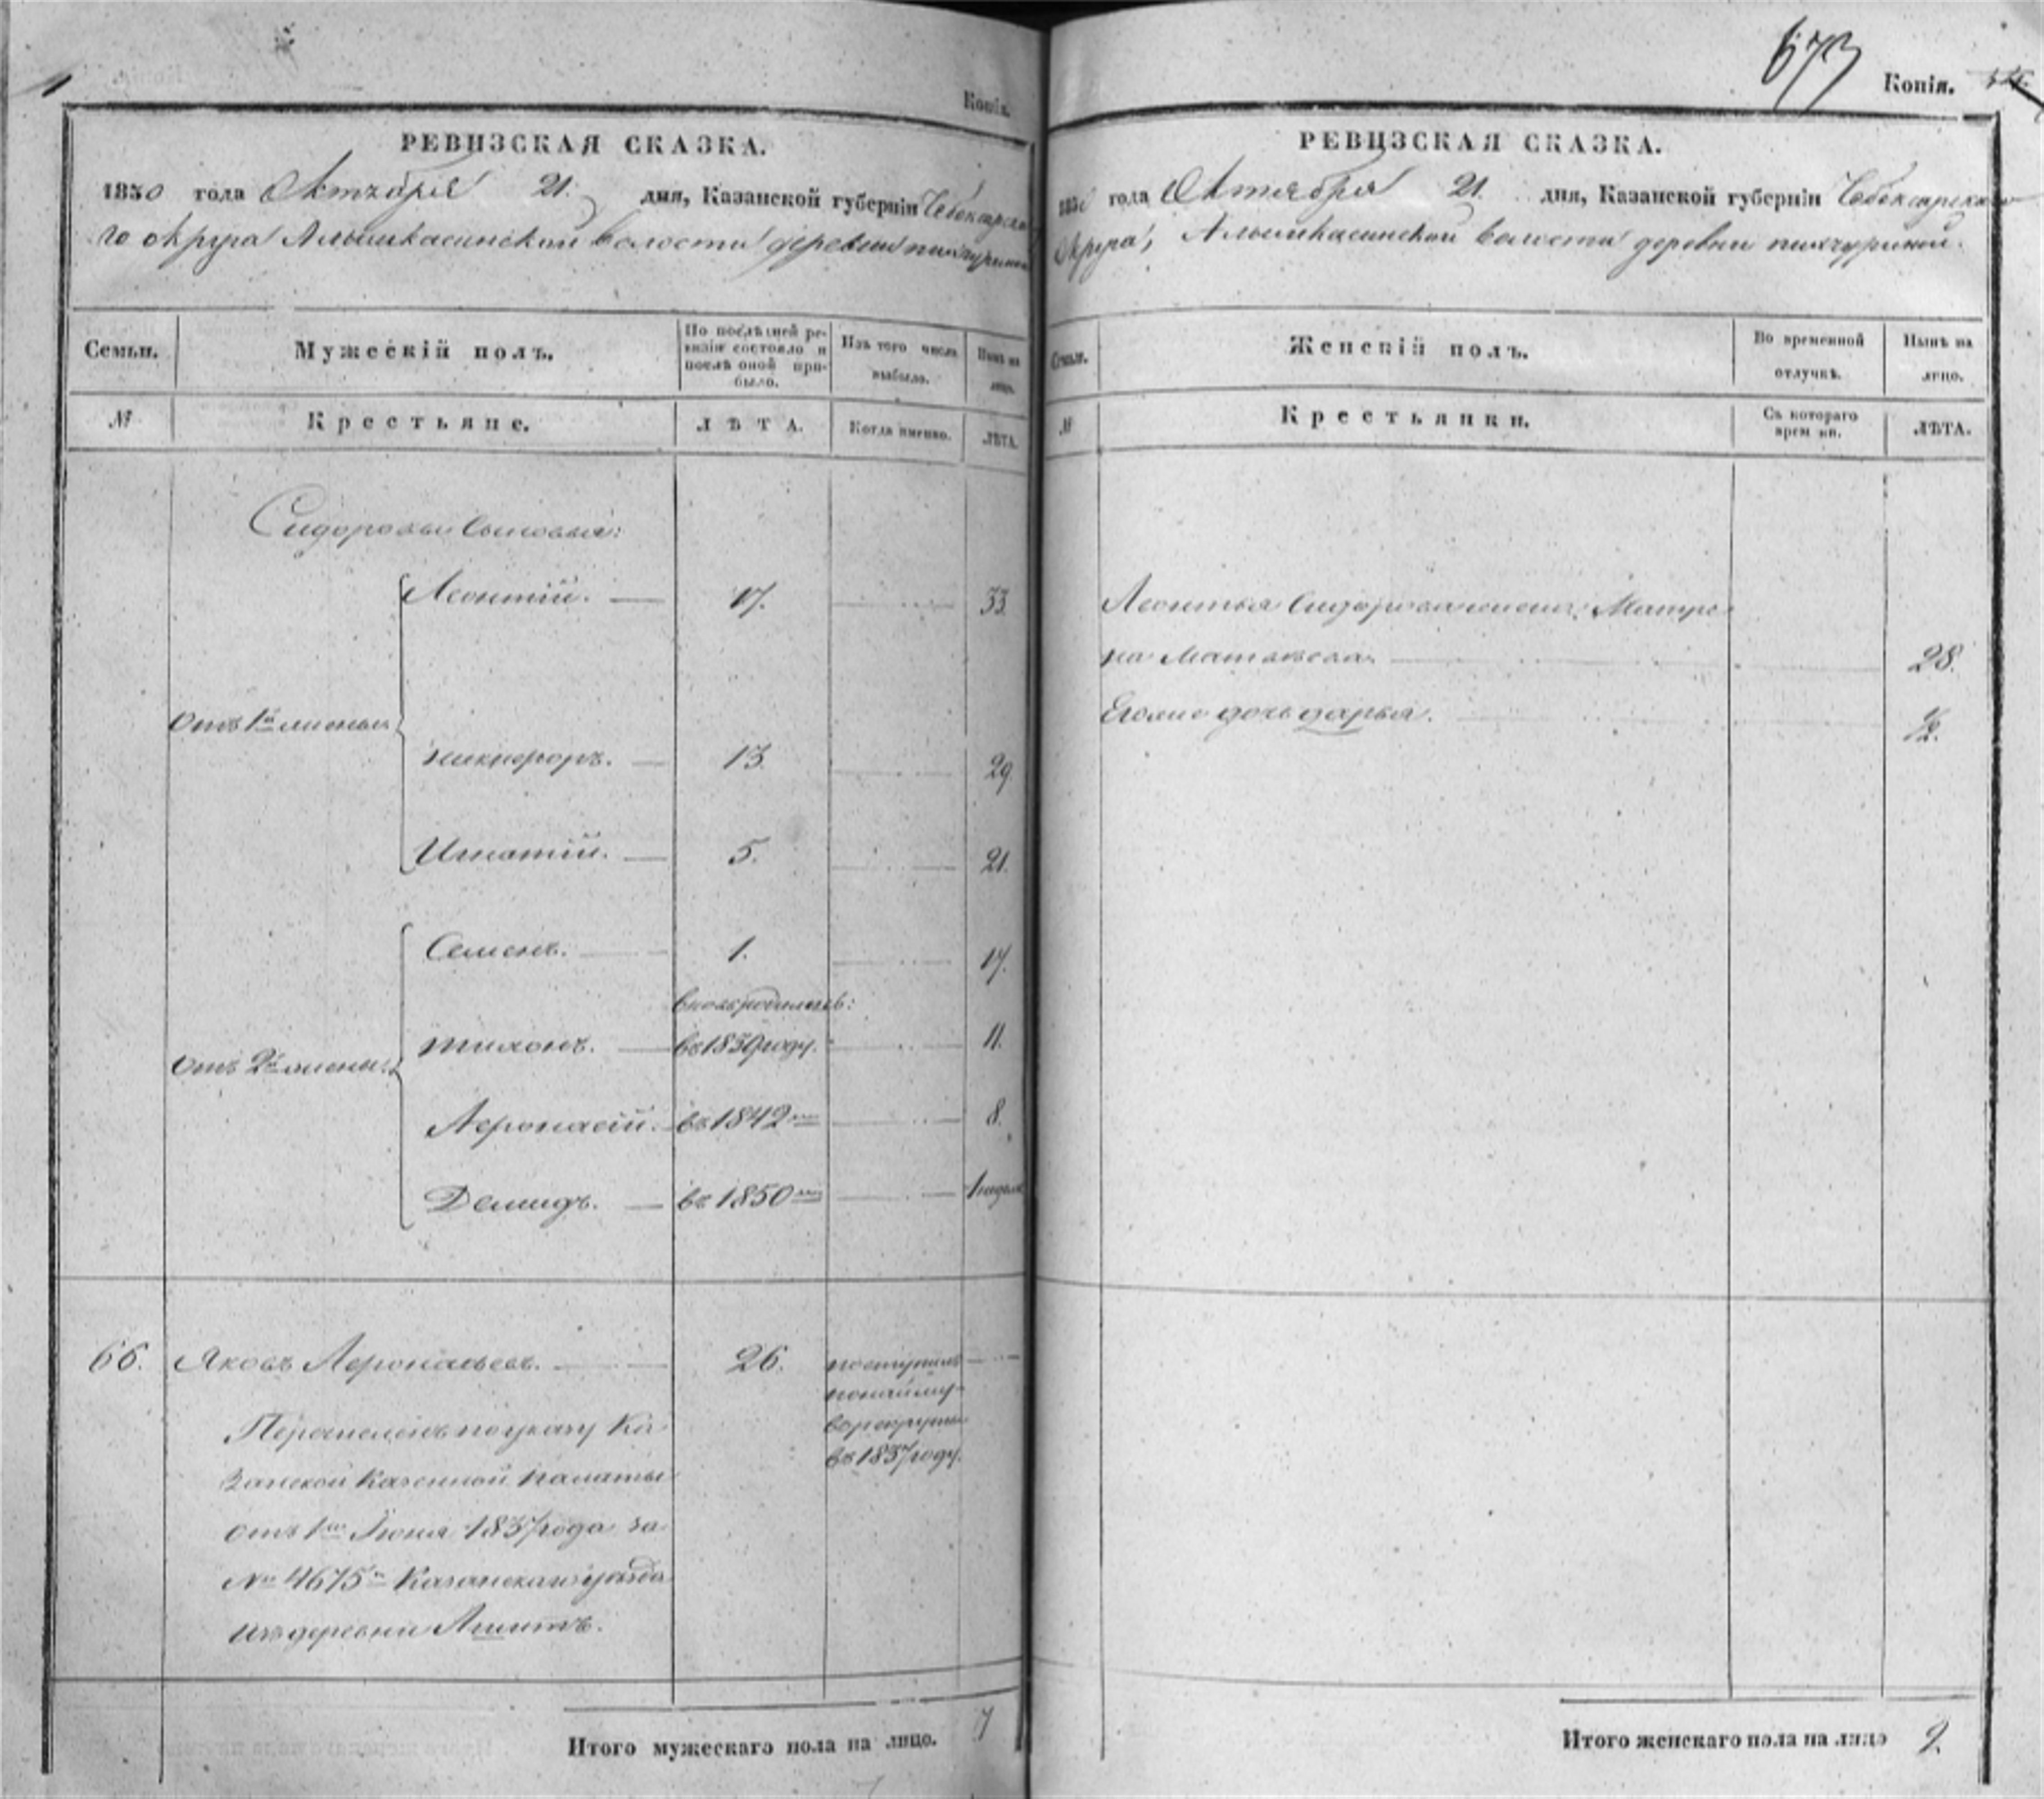 Копія.
РЕВИЗСКАЯ СКАЗКА.
1850 года Октября 21. дня, Казанской губерніи Чебоксарска
го округа Алымкасинской волости деревни пихчуриной
Семьи.
Мужескій полъ.
По послѣдней ре-
визіи состояло и
послѣ оной при-
было.
Изъ того числа
выбыло.
Нынѣ на
лицо.
№
Крестьяне.
ЛѢТА.
Когда именно.
ЛѢТА.
Сидоровы сыновья:
Отъ 1й жены
Леонтій. 17. 33.
никифоръ. 13. 29
Игнатій. 5. 21.
Отъ 2й жены
Семенъ. 1. 17.
вновь родились:
тихонъ. въ 1839 году. 11.
Афонасій. въ 1842мъ 8.
Демидъ. въ 1850мъ 1 недели
66. Яковъ Афонасьевъ. 26. поступилъ
понайму
в рекруты
въ 1837 году.
Перечисленъ по указу Ка
занской Казенной палаты
отъ 1го Іюня 1837 года за
№ 4675м Казанскаго уѣзда
изъ деревни Ашитъ.
Итого мужескаго пола на лицо. 7
673
Копія.
РЕВИЗСКАЯ СКАЗКА.
1850 года Октября 21. дня, Казанской губерніи Чебоксарскаго
Округа, Алымкасинской волости деревни пихчуриной.
Семьи.
Женскій полъ.
Во временной
отлучкѣ.
Нынѣ на
лицо.
№
Крестьянки.
Съ котораго
времени.
ЛѢТА.
Леонтья Сидорова жена Матре
на Матвѣева 28.
Егоже дочь дарья. 1/2.
Итого женскаго пола на лицо 2.